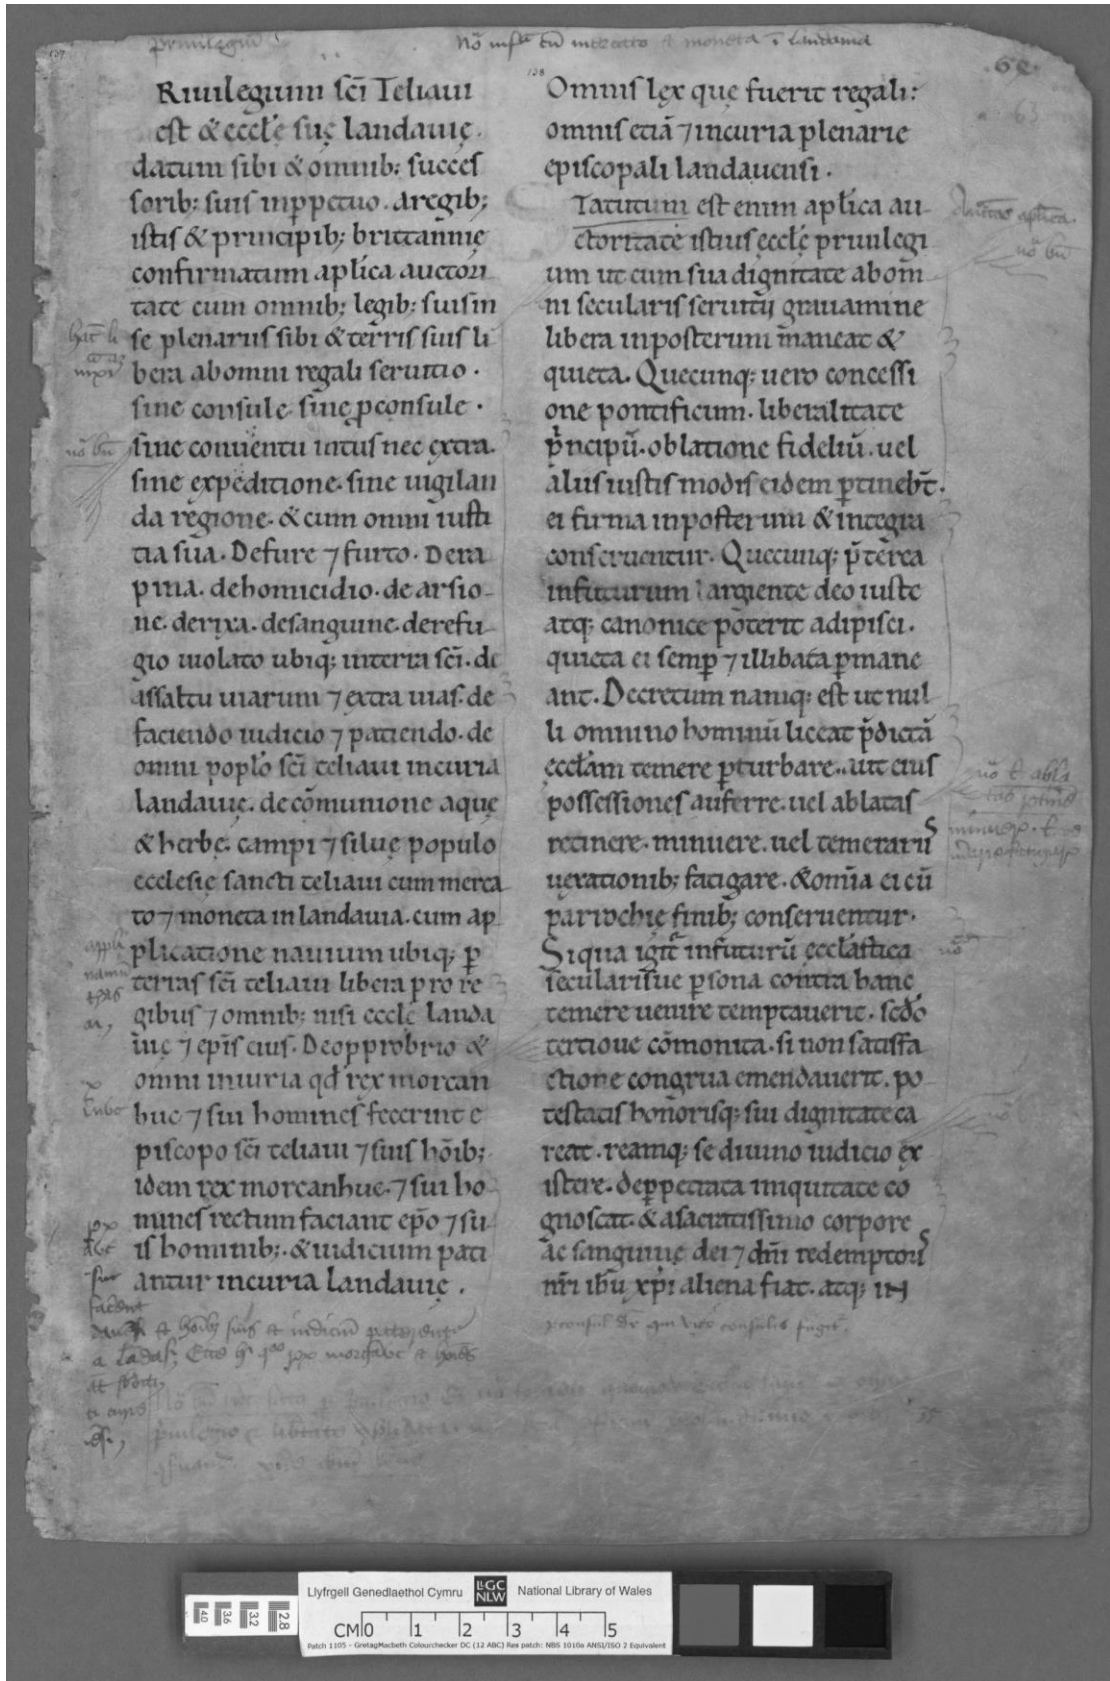 137
priuilegiũ
Nõ infra cũ mercato & moneta ĩ landauia
138
Riuilegium sc̄i Teliaui
est & eccłe suę landauię.
datum sibi & omnib; succes
sorib; suis inp̱petuo. A regib;
istis & principib; brittannię
confirmatum aplica auctori
tate cum omnib; legib; suis in
se plenarus sibi & terris suis li
bera abomni regali seruitio.
sine consule. sine p̱consule.
sine conuentu intus nec extra.
sine expeditione. sine uigilan
da regione. & cum omni iusti
tia sua. Defure ⁊ furto. Dera
pina. dehomicidio. de arsio
ne. derixa. desanguine. derefu
gio uiolato ubiq; interra sc̄i. de
assaltu uiarum ⁊ extra uias. de
faciendo iudicio ⁊ patiendo. de
omni popło sc̄i teliaui incuria
landauię. de cõmunione aquę
& herbę. campi ⁊ siluę populo
ecclesię sancti teliaui cum merca
to ⁊ moneta in landauia. cum ap
plicatione nauium ubiq; p̱
terras sc̄i teliaui libera pro re
gibus ⁊ omnib; nisi eccłe landa
uię ⁊ ep̄is eius. Deopprobrio &
omni iniuria qd̄ rex morcan
huc ⁊ sui homines fecerint e
piscopo sc̄i teliaui ⁊ suis hõib;
idem rex morcanhuc. ⁊ sui ho
mines rectum faciant ep̄o ⁊ su
is hominib;. & iudicium pati
antur incuria landauię.
Omnis lex quę fuerit regali:
omnis etiã ⁊ incuria plenarie
episcopali landauensi.
Tatutum est enim aplica au
ctoritate istius eccłe priuilegi
um ut cum sua dignitate abom
ni secularis seruitii grauamine
libera inposterum maneat &
quieta. Quecunq; uero concessi
one pontificum. liberalitate
p̱ncipũ. oblatione fideliũ. uel
aliis iustis modis eidem p̱tinebr̄t.
ei firma inposterum & integra
conseruentur. Quecunq; p̄terea
infuturum largiente deo iuste
atq; canonice poterit adipisci.
quieta ei semp̱ ⁊ illibata p̱mane
ant. Decretum namq; est ut nul
li omnino hominũ liceat p̄dictã
eccłam temere p̱turbare. aut eius
possessiones auferre. uel ablatas
retinere. minuere. uel temerariis
uexationib; fatigare. & omĩa ei cũ
parrochię finib; conseruentur.
Siqua igit̄ infuturũ eccłastica
secularisue p̱sona contra hanc
temere uenire temptauerit. sedo
tertioue cõmonita. si non satisfa
ctione congrua emendauerit. po
testatis honorisq; sui dignitate ca
reat. reamq; se diuino iudicio ex
istere. dep̱petrata iniquitate co
gnoscat. & asacratissimo corpore
ac sanguine dei ⁊ dn̄i redemptoris
nr̄i ih̄u xp̄i aliena fiat. atq; in
Llyfrgell Genedlaethol Cymru
LLGC
NLW
National Library of Wales
4.0 3.6 3.2 2.8
CM 0 1 2 3 4 5
Patch 1105 - GretagMacbeth Colourchecker DC (12 ABC) Res patch: NBS 1010a ANSI/ISO 2 Equivalent